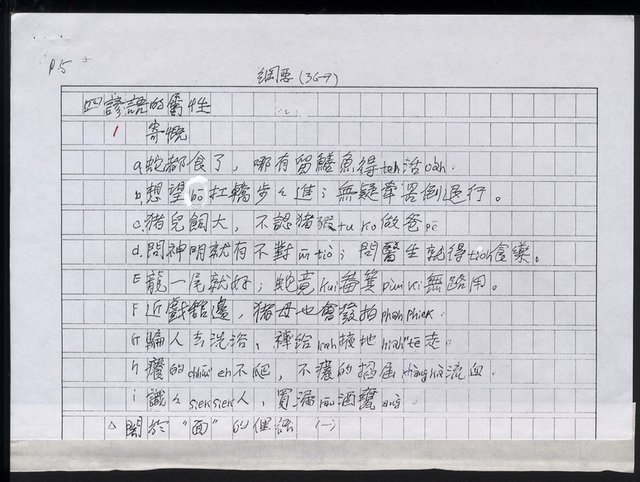 P.5
綱要(36-9)
四 諺語的屬性
1 寄慨
a.蛇都食了,哪有留鱔魚得teh活oah.
b.想望bō扛轎步々進;無疑牽罟倒退行。
c.猪兒飼大,不認猪tu ko做爸pē
d.問神明就有不對m̄ tio̍;問醫生就得tioh食藥。
E 龍一尾就好;蛇竟kui畚箕pùn ki無路用。
F 近戲館邊,猪母也會發拍phah phiek.
G 騙人去洗浴,褲給kah披地hiah te̍走.
h 癢的 不爬,不癢的搔屆 流血.
i 識々siek siek人,買漏lāu酒甕àng.
△ 關於"面"的俚諺 (一)